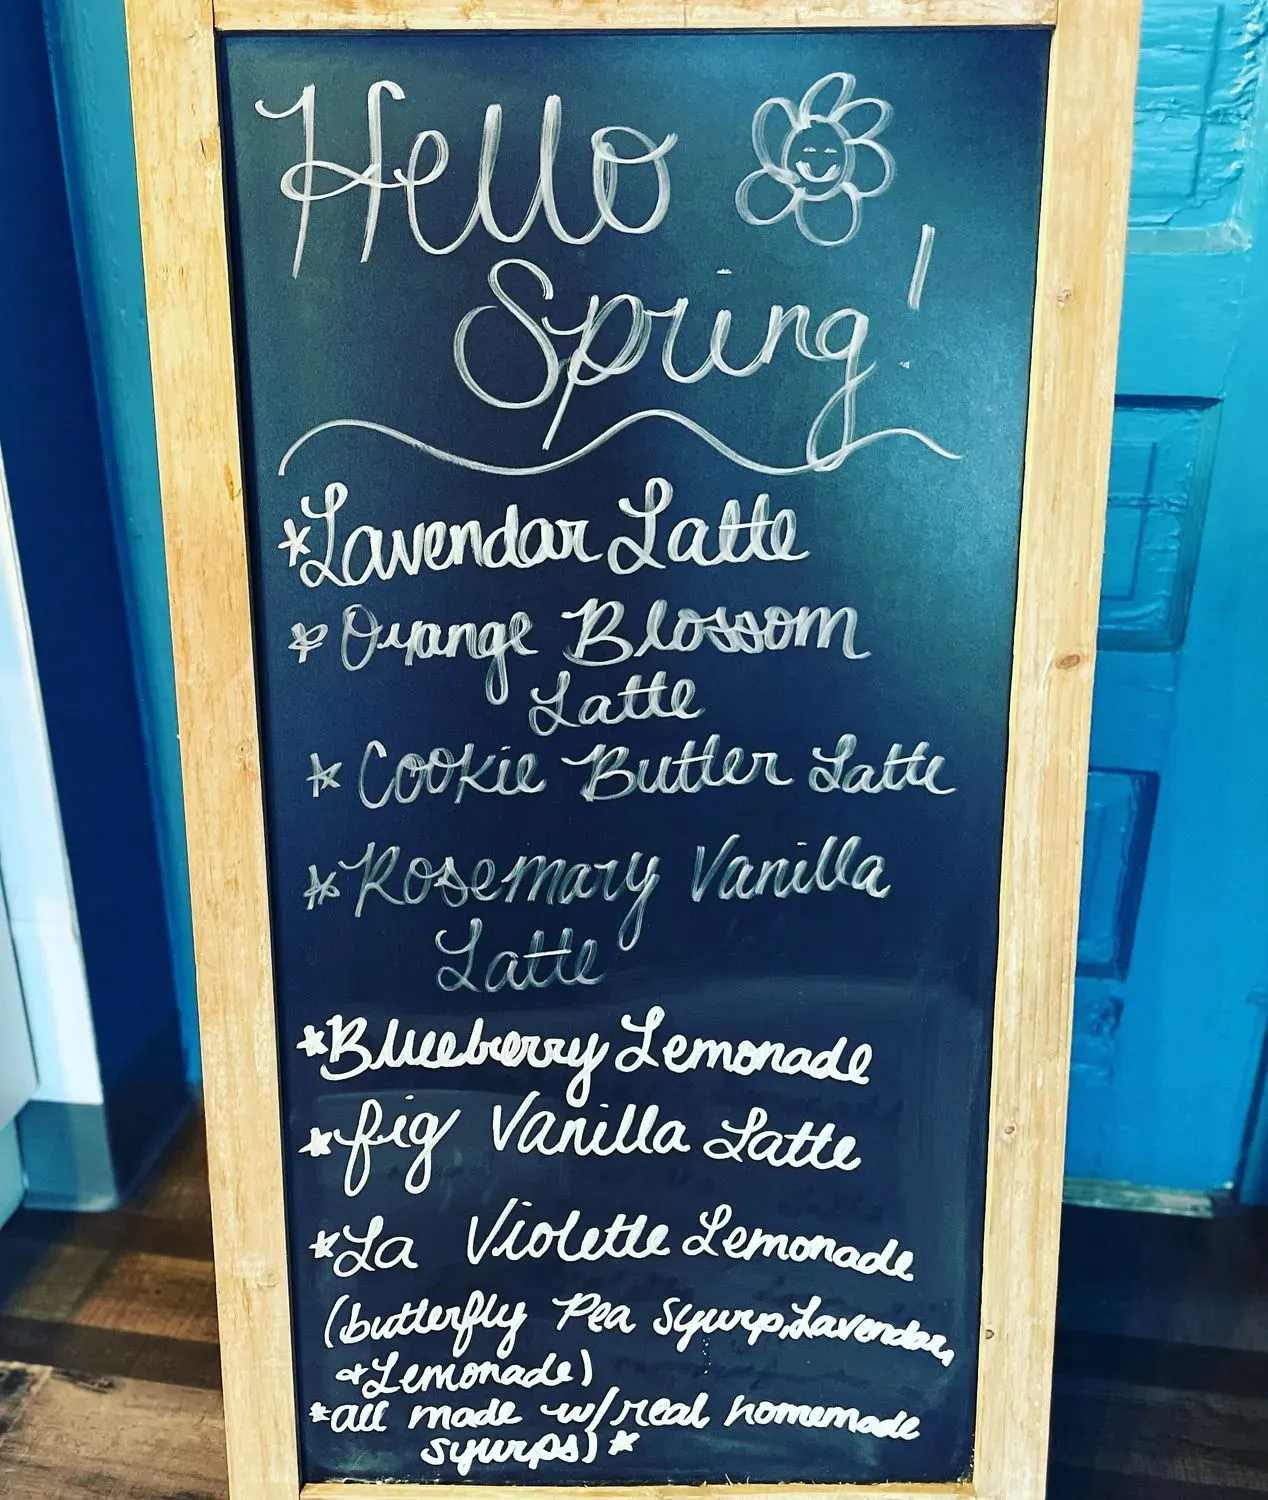 Hello
Spring!
*Lavendar Latte
* Orange Blossom
Latte
* Cookie Butter Latte
* Rosemary Vanilla
Latte
*Blueberry Lemonade
*fig Vanilla Latte
*La Violette Lemonade
(butterfly Pea syrup, Lavendar,
& Lemonade)
*all made w/real homemade
syurps)*